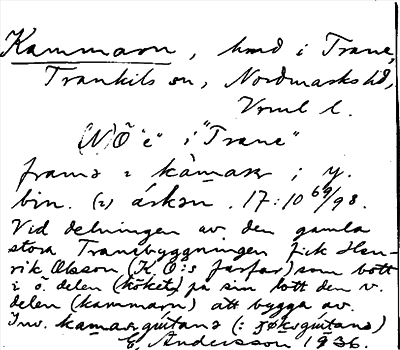 Kammarn, hmd i Trane,
Trankils sn, Nordmarks hd,
Vrml l.
(N)Ö "e" i "Trane"
frama i kàmar ; y.
bin. (2) åskan. 17:10 69/98.
Vid delningen av den gamla
stora Tranebyggningen fick Hen-
rik Olsson (K. O:s farfar) som bott
i ö. delen (köket) på sin lott den v.
delen (kammarn) att bygga av.
Inv. kamargutana (: søksgutana)
E. Andersson 1936.